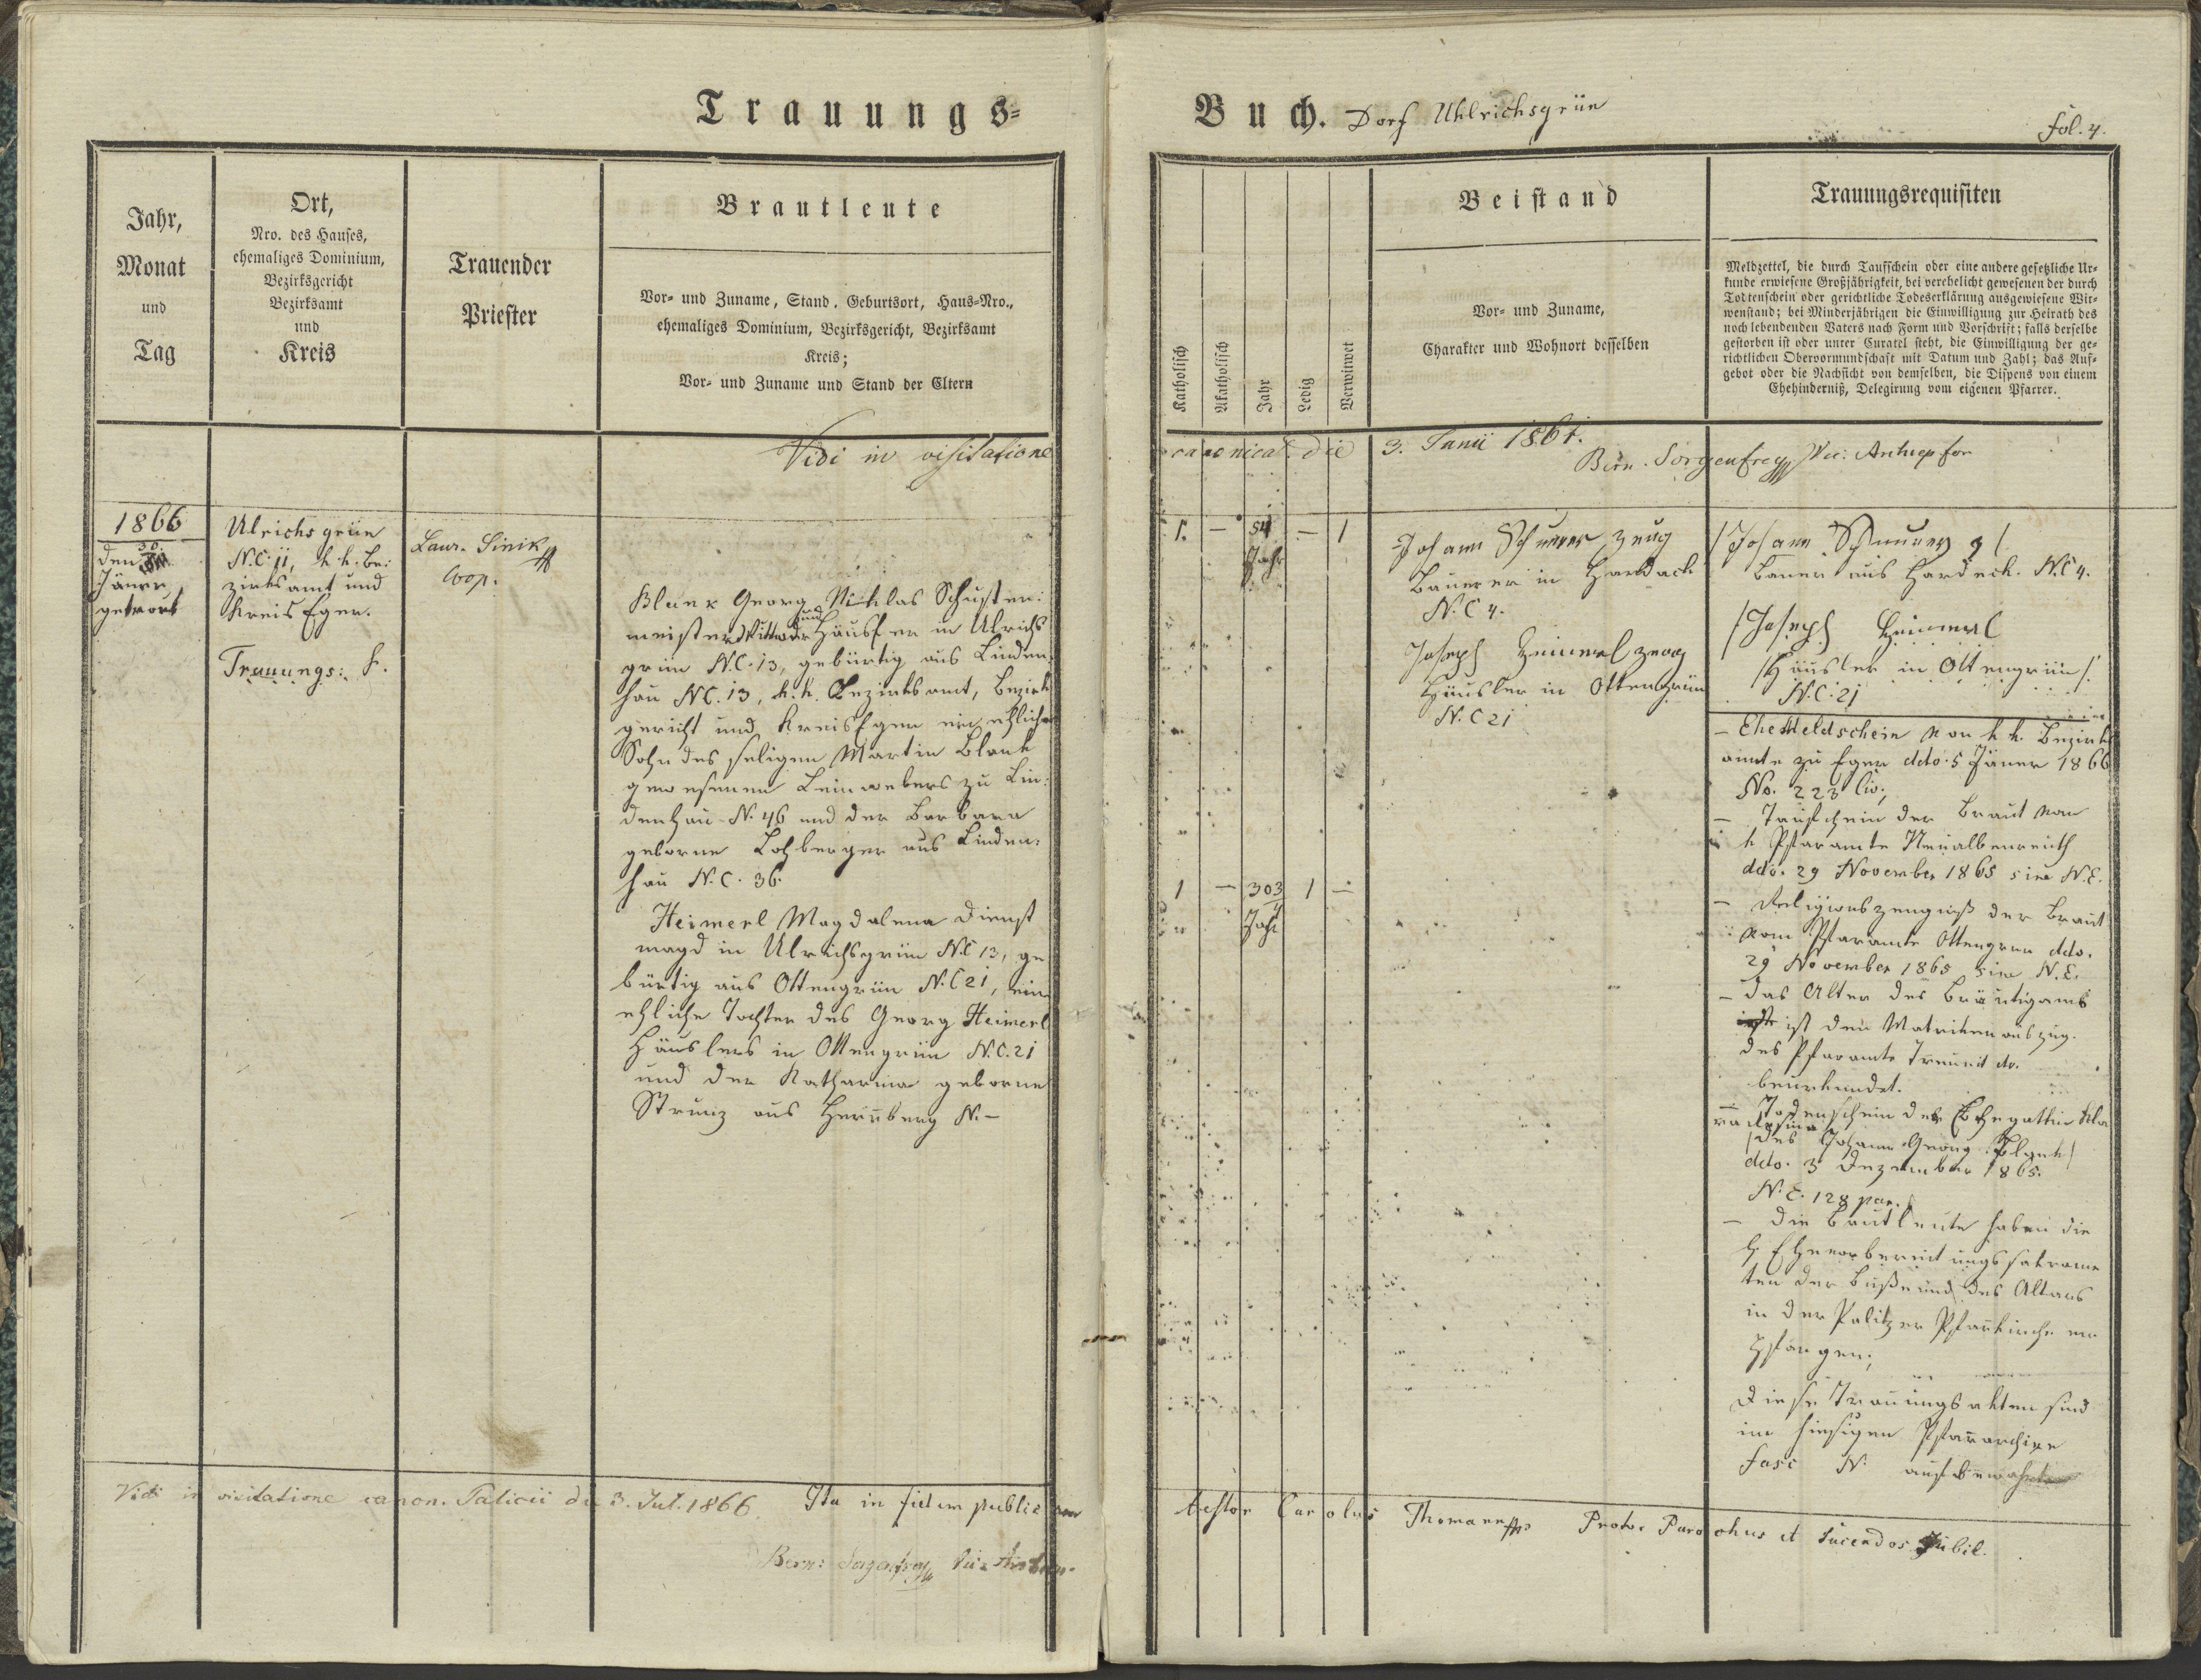 Trauungs=
Buch. Dorf Uhlrichsgrün
fol. 4.
Jahr,
Monat
und
Tag
Ort,
Nro. des Hauses,
ehemaliges Dominium,
Bezirksgericht
Bezirksamt
und
Kreis
Trauender
Priester
Brautleute
Vor- und Zuname, Stand, Geburtsort, Haus-Nro.,
ehemaliges Dominium, Bezirksgericht, Bezirksamt
Kreis;
Vor- und Zuname und Stand der Eltern
Katholisch
Akatholisch
Jahr
Ledig
Verwitwet
Beistand
Vor- und Zuname,
Charakter und Wohnort desselben
Trauungsrequisiten
Meldzettel, die durch Taufschein oder eine andere gesetzliche Ur-
kunde erwiesene Großjährigkeit, bei verehelicht gewesenen der durch
Todtenschein oder gerichtliche Todeserklärung ausgewiesene Wit-
wenstand; bei Minderjährigen die Einwilligung zur Heirath des
noch lebendenden Vaters nach Form und Vorschrift; falls derselbe
gestorben ist oder unter Curatel steht, die Einwilligung der ge-
richtlichen Obervormundschaft mit Datum und Zahl; das Auf-
gebot oder die Nachsicht von demselben, die Dispens von einem
Ehehinderniß, Delegirung vom eigenen Pfarrer.
Vidi in visitatione canonica die 3. Junii 1864.
Bern. Sorgenfrey Vic:
1866
den 30
Jäner
getraut
Ulrichsgrün
N.C. 11, k. k. Be:
zirksamt und
Kreis Eger.
Trauungs:
Laur. Sinik
Coop.
Blank Georg Niklas Schuster:
meister Witwer und Häusler in Ulrichs
grün N.C. 13, gebürtig aus Linden:
hau NC. 13, k. k. Bezirksamt, Bezirk
gericht und Kreis Eger ein ehlicher
Sohn des seligen Martin Blank
gewesenen Leinwebers zu Lin:
denhau N. 46 und der Barbara
geborne Lohberger aus Linden:
hau N.C. 36.
Heimerl Magdalena Dienst
magd in Ulrichsgrün N.C 13, ge
bürtig aus Ottengrün N.C 21, eine
ehliche Tochter des Georg Heimerl
Häuslers in Ottengrün N.C. 21
und der Katharina geborne
Strunz aus Hernberg N. –
1. – 54 – 1
Jahr
1 – 30 3/4 1 –
Jahr
Johann Schnurer Zeug
Bauer in Hardeck
N.C 4.
Joseph Heimerl Zeug
Häusler in Ottengrün
N.C 21
/Johann Schnurer /
Bauer aus Hardeck. N.C 4.
/Joseph Heimerl
/Häusler in Ottengrün/
N.C. 21
– Ehe Meldschein von k. k. Bezirks
amte zu Eger ddo. 5 Jäner 1866
No. 223 civ;
– Taufschein der Braut von
k Pfaramte Neualbenreuth
ddo. 29 November 1865 sine N.E.
– Religionszeugniß der Braut
vom Pfaramte Ottengrün ddo.
29 November 1865 sine N.E.
– das Alter des Bräutigams
ist den Matrikenauszug
des Pfaramts
beurkundet.
– Todenschein der Ehegattin
/des Johann Georg Blank/
ddo. 3 Dezember 1865.
N.E. 128 par.
– die Brautleute haben die
h. Ehevorbereitungssakrame
ten der Buße und des Altars
in der Palitzer Pfarrkirche em
pfangen;
Diese Trauungsakten sind
im hiesigen Pfararchive
Fasc N. aufbewahrt
Vidi in visitatione canon. Palicii die 3. Jul. 1866.
Bern: Sorgenfrey
Ita in fidem publicam testor Carolus Thomann Parochus et Sacerdos Jubil.